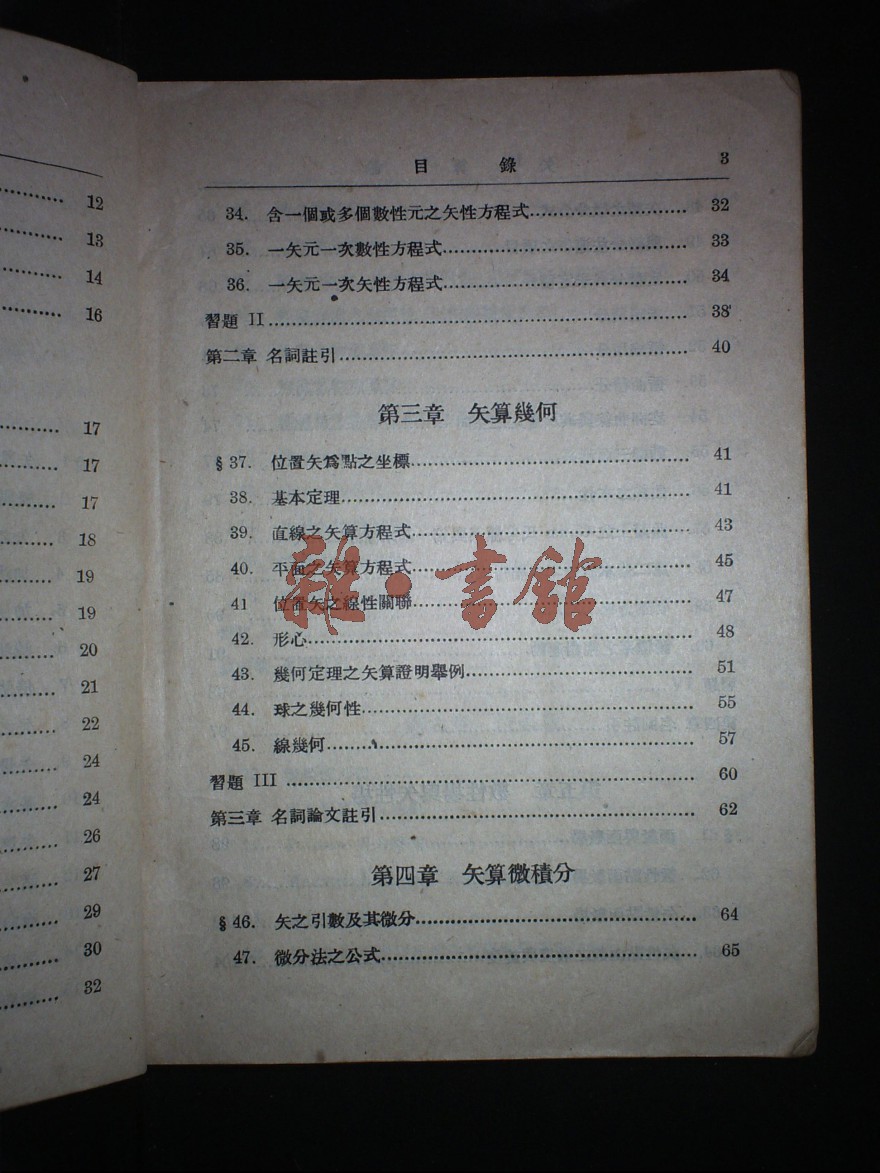 12
13
14
16
17
17
17
18
19
19
20
21
22
24
24
26
27
29
30
32
目錄 3
34. 含一個或多個數性元之矢性方程式 32
35. 一矢元一次數性方程式 33
36. 一矢元一次矢性方程式 34
習題 II 38
第二章 名詞註引 40
第三章 矢算幾何
§37. 位置矢爲點之坐標 41
38. 基本定理 41
39. 直線之矢算方程式 43
40. 平面之矢算方程式 45
41 位置矢之線性關聯 47
42. 形心 48
43. 幾何定理之矢算證明舉例 51
44. 球之幾何性 55
45. 線幾何 57
習題 III 60
第三章 名詞論文註引 62
第四章 矢算微積分
§46. 矢之引數及其微分 64
47. 微分法之公式 65
雜·書館